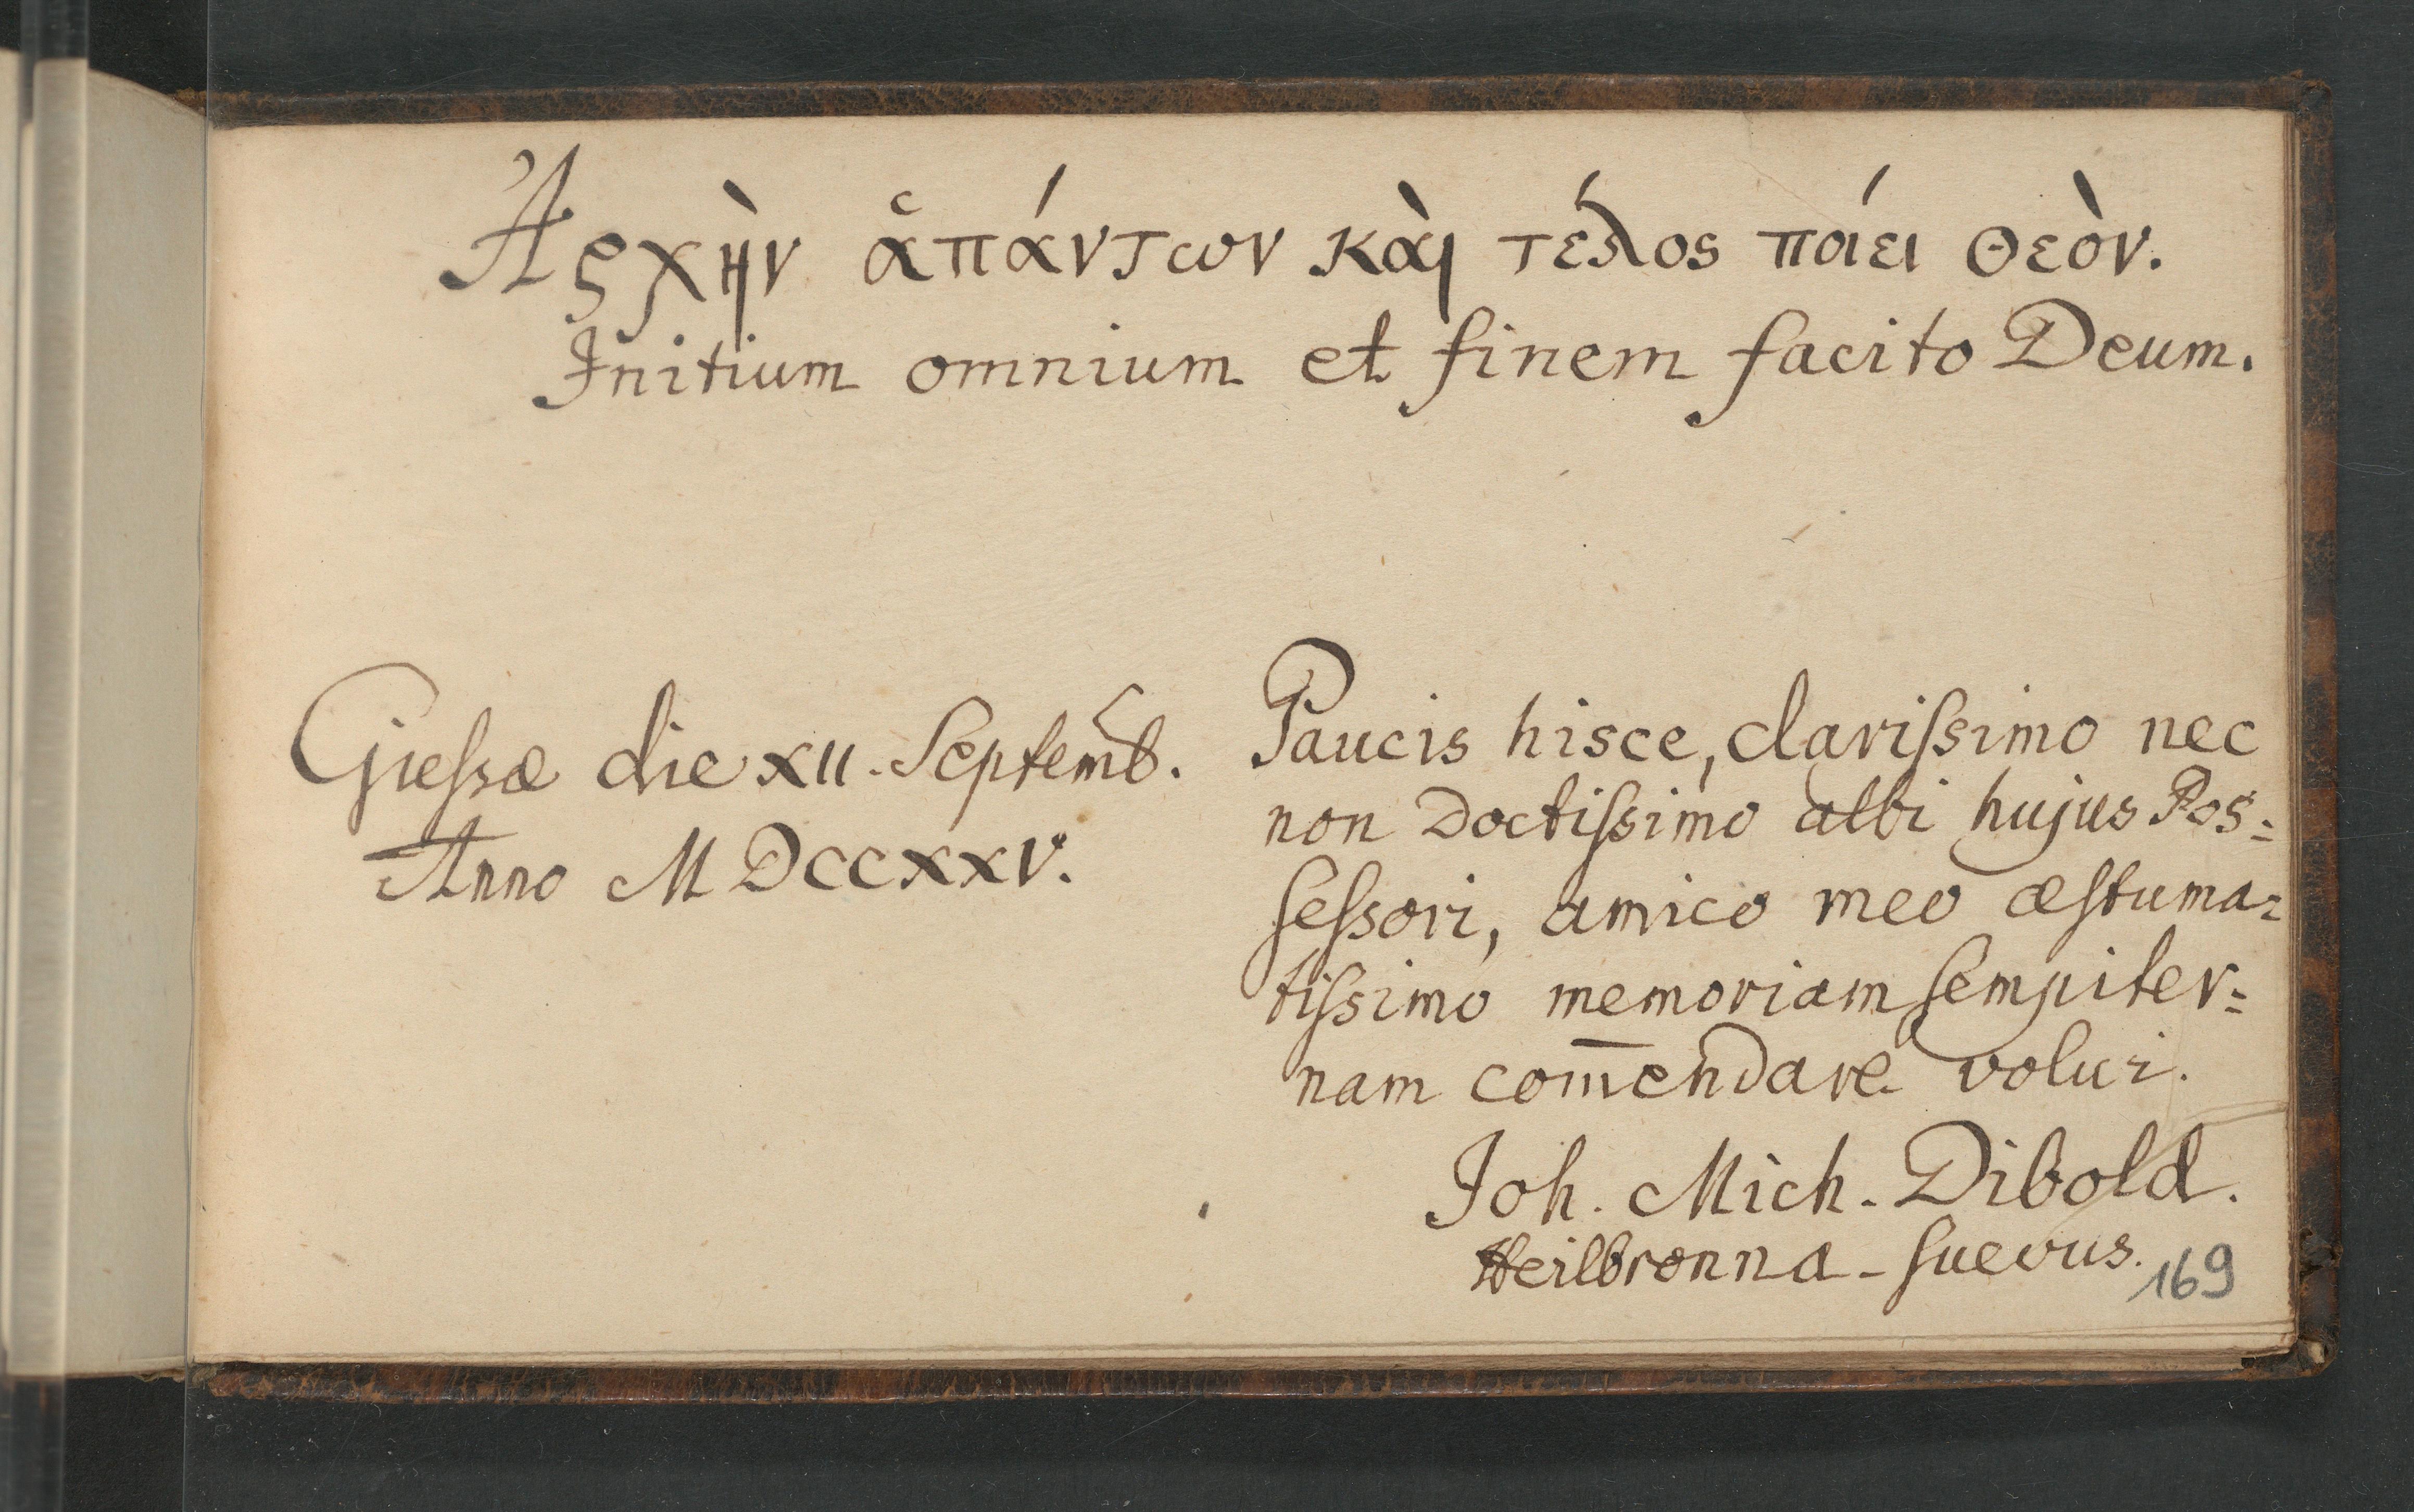 Ἀρχὴν ἁπάντων καὶ τέλος ποίει Θεὸν.
Initium omnium et finem facito Deum.
Gieſsæ die XII. Septemb.
Anno MDCCXXV.
Paucis hisce, clariſsimo nec
non Doctiſsimo albi hujus Pos=
ſeſsori, amico meo æſtuma=
tiſsimo memoriam ſempiter=
nam com̄endare volui.
Joh. Mich. Dibold.
Heilbronna-ſuevus.
169